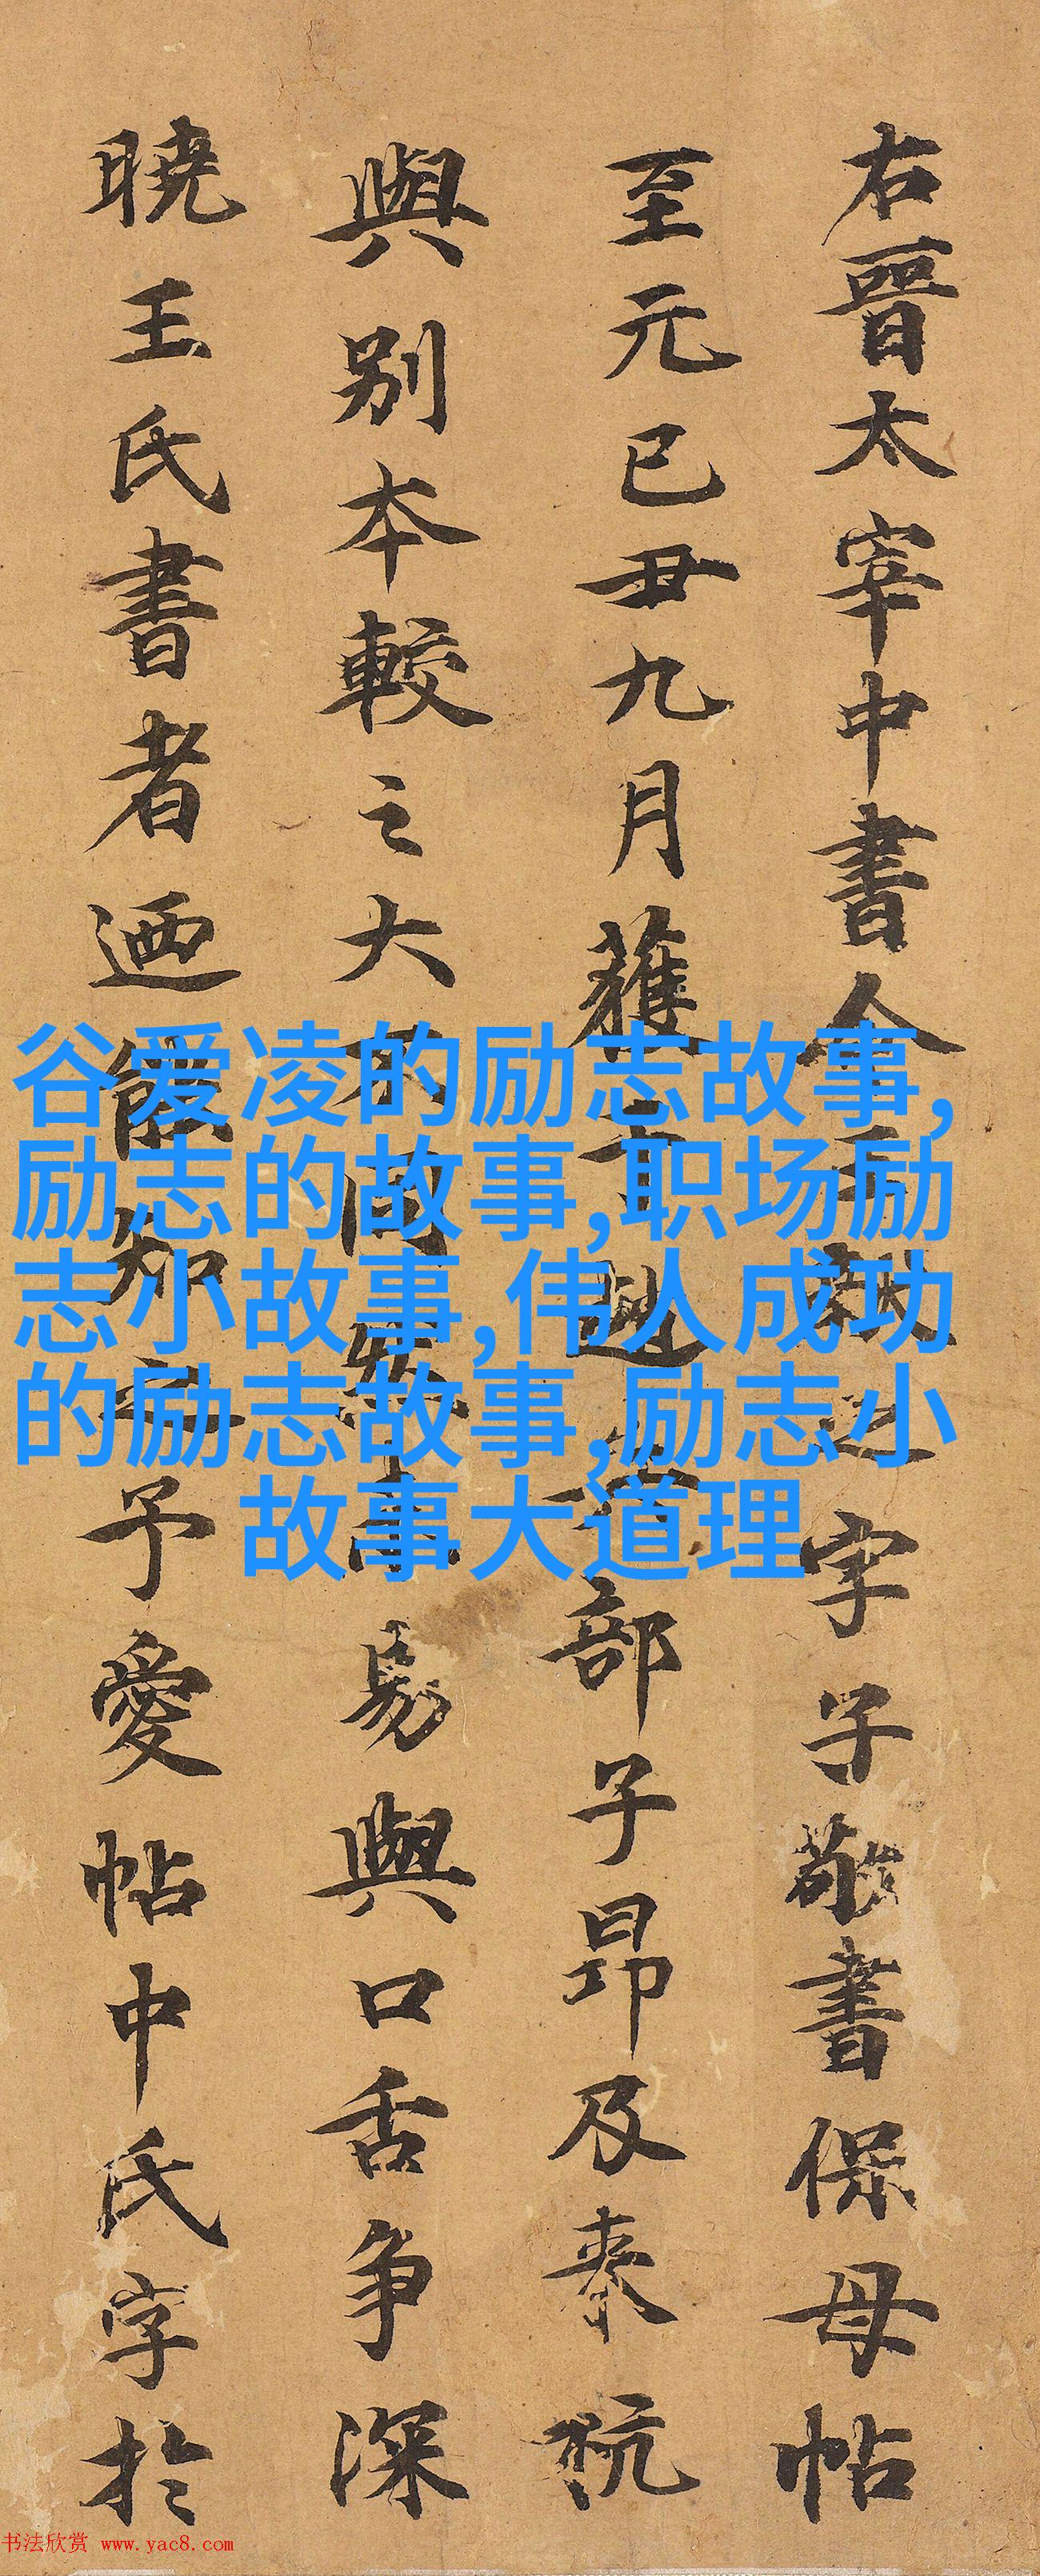 右晉太宰中書令王獻之字子敬書保母帖
至元已丑九月獲于越部子昂及來杭
與別本較之大不同易與口舌爭深
曉王氏書者迺能知之予愛帖中氏字於
谷爱凌的励志故事,
励志的故事,职场励
志小故事,伟人成功
的励志故事,励志小
故事大道理
书法欣赏 www.yac8.com